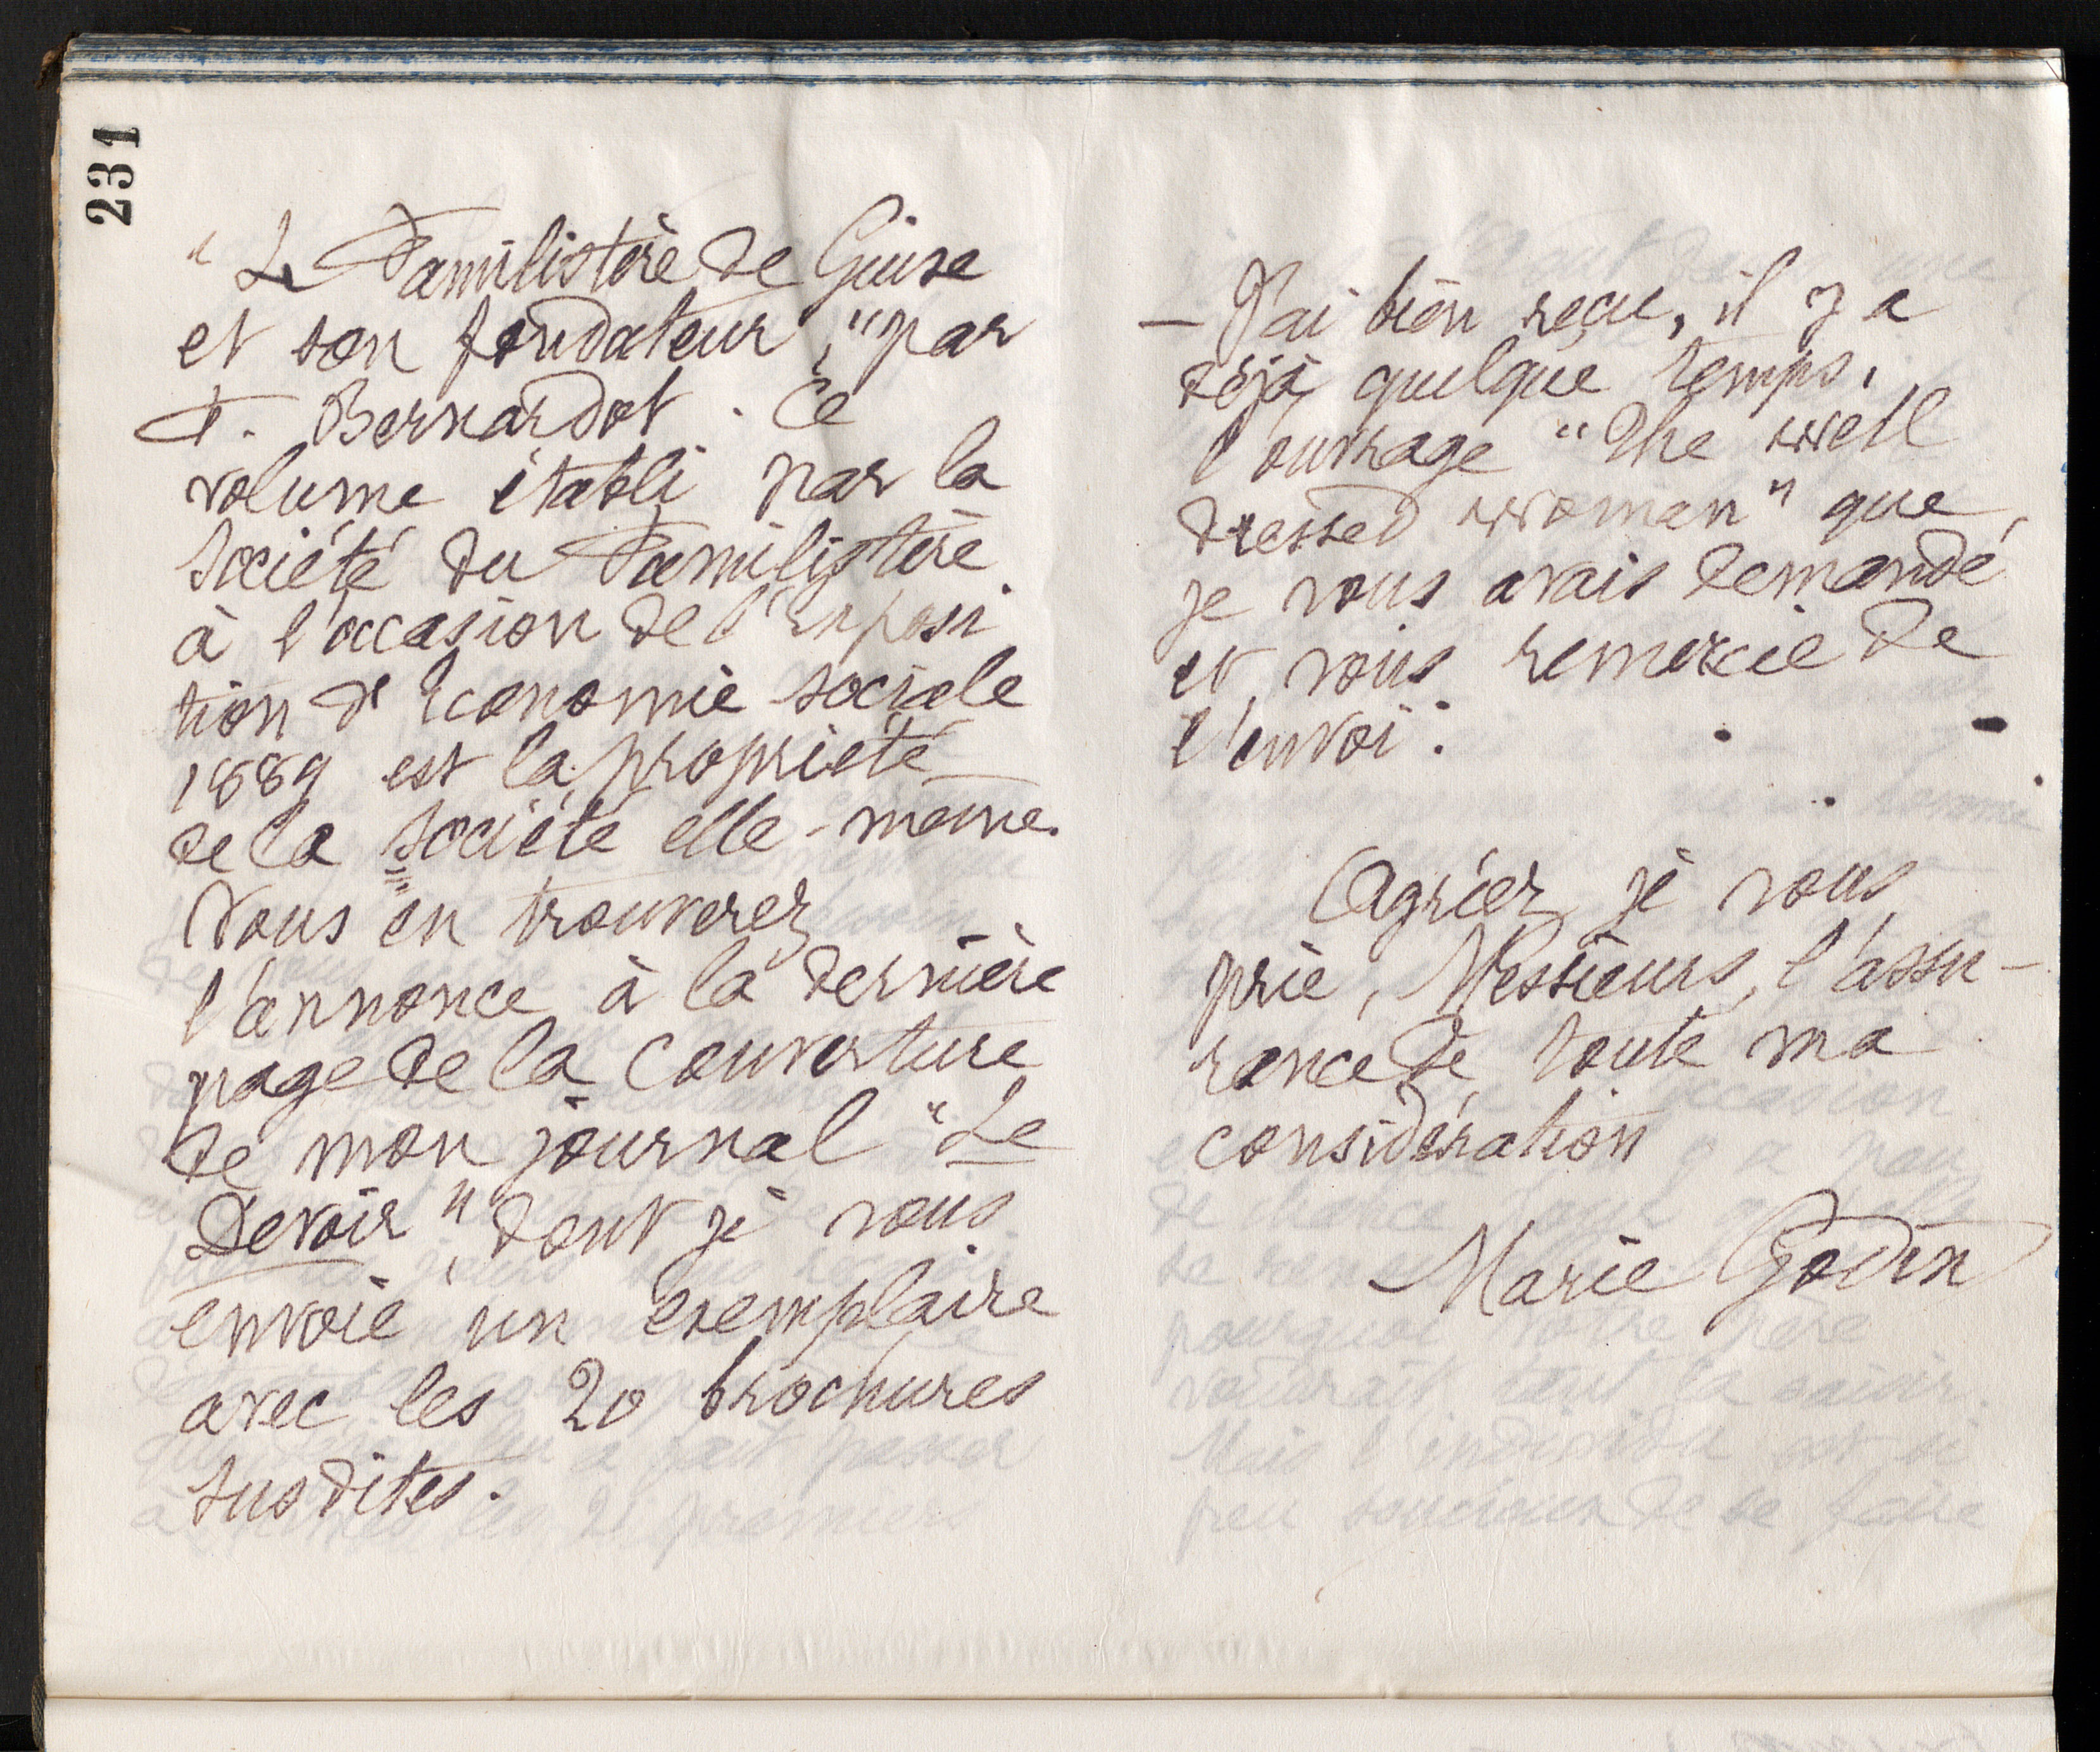 231
"Le Familistère de Guise
et son fondateur," par
F. Bernardot. Ce
volume établi par la
Société du Familistère
à l'occasion de l'Exposi
tion d'Economie sociale
1889 est la propriété
de la Société elle-même.
Vous en trouverez
l'annonce à la dernière
page de la couverture
de mon journal "Le
Devoir", dont je vous
envoie un exemplaire
avec les 20 brochures
susdites.
— J'ai bien reçu, il y a
déjà quelque temps,
l'ouvrage "The well
dressed woman" que
je vous avais demandé
et vous remercie de
l'envoi.
Agréez, je vous
prie, Messieurs, l'assu-
rance de toute ma
considération
Marie Godin